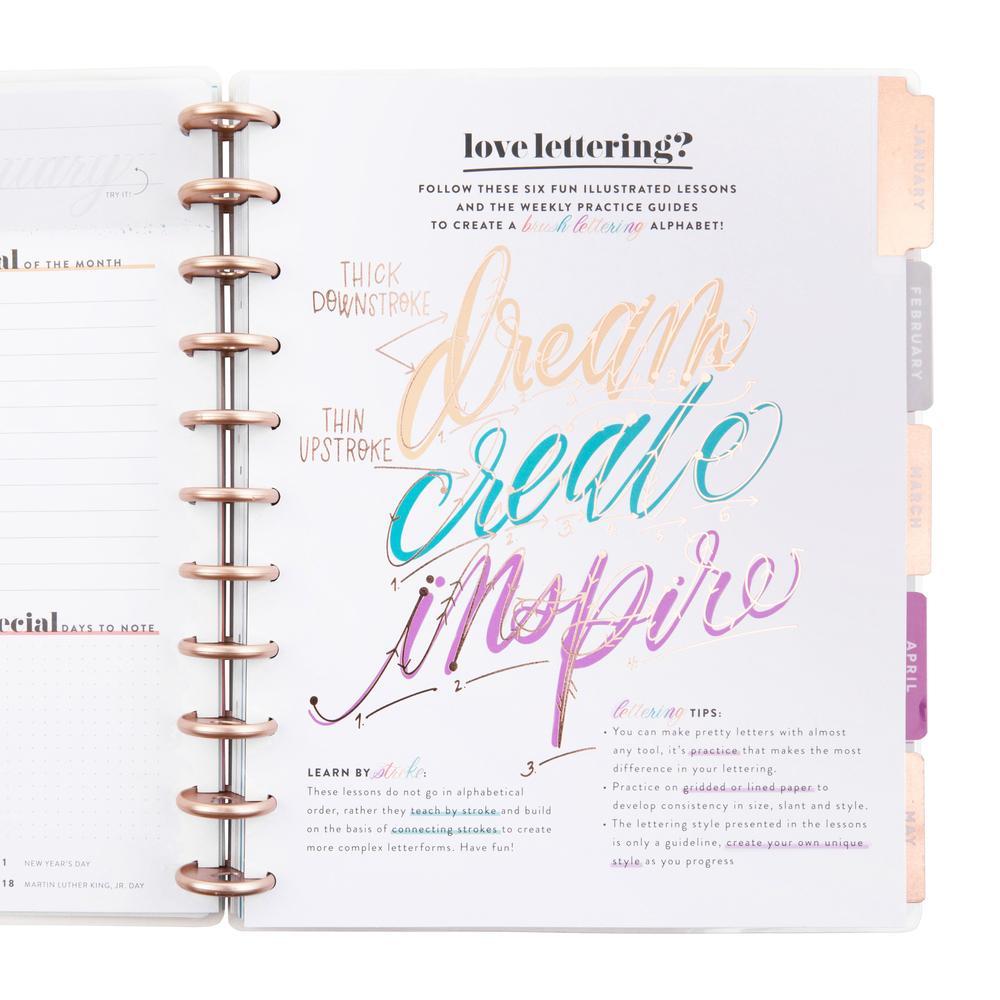 TRY IT!
al OF THE MONTH
ecial DAYS TO NOTE
1 NEW YEAR'S DAY
18 MARTIN LUTHER KING, JR. DAY
love lettering?
FOLLOW THESE SIX FUN ILLUSTRATED LESSONS
AND THE WEEKLY PRACTICE GUIDES
TO CREATE A brush lettering ALPHABET!
THICK
DOWNSTROKE
dream
THIN
UPSTROKE
create
inspire
1.
2.
3.
LEARN BY stroke:
These lessons do not go in alphabetical
order, rather they teach by stroke and build
on the basis of connecting strokes to create
more complex letterforms. Have fun!
lettering TIPS:
• You can make pretty letters with almost
any tool, it's practice that makes the most
difference in your lettering.
• Practice on gridded or lined paper to
develop consistency in size, slant and style.
• The lettering style presented in the lessons
is only a guideline, create your own unique
style as you progress
JANUARY
FEBRUARY
MARCH
APRIL
MAY